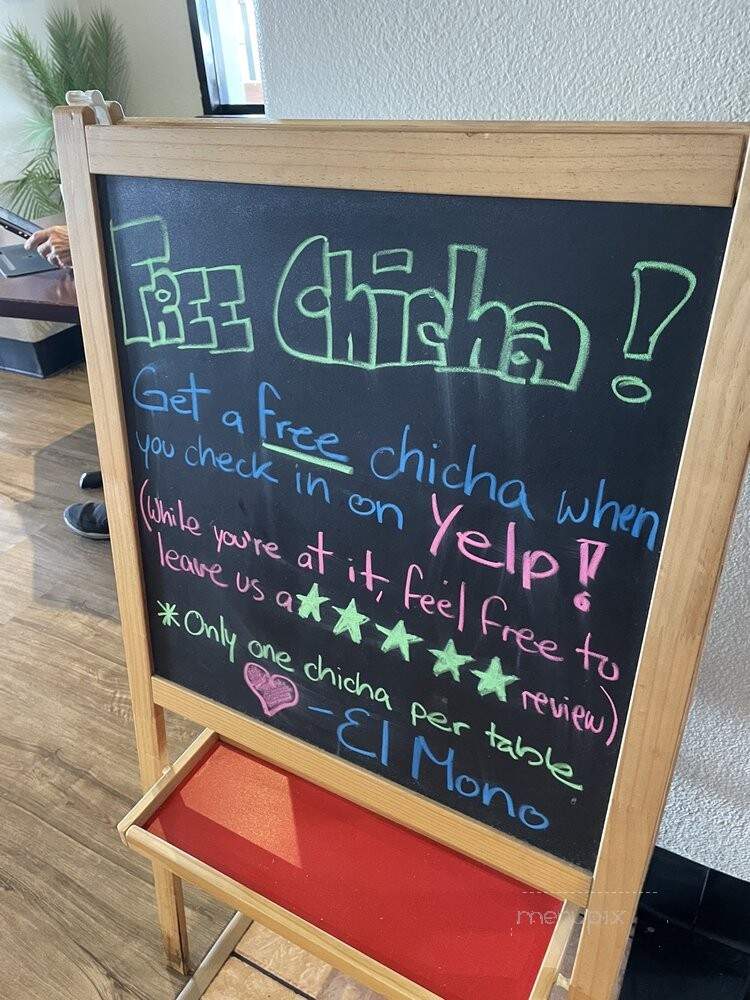 FREE Chicha!
Get a free chicha when
you check in on Yelp!
(while you're at it, feel free to
leave us a ★★★★★ review)
*Only one chicha per table
♥ -El Mono
menupix